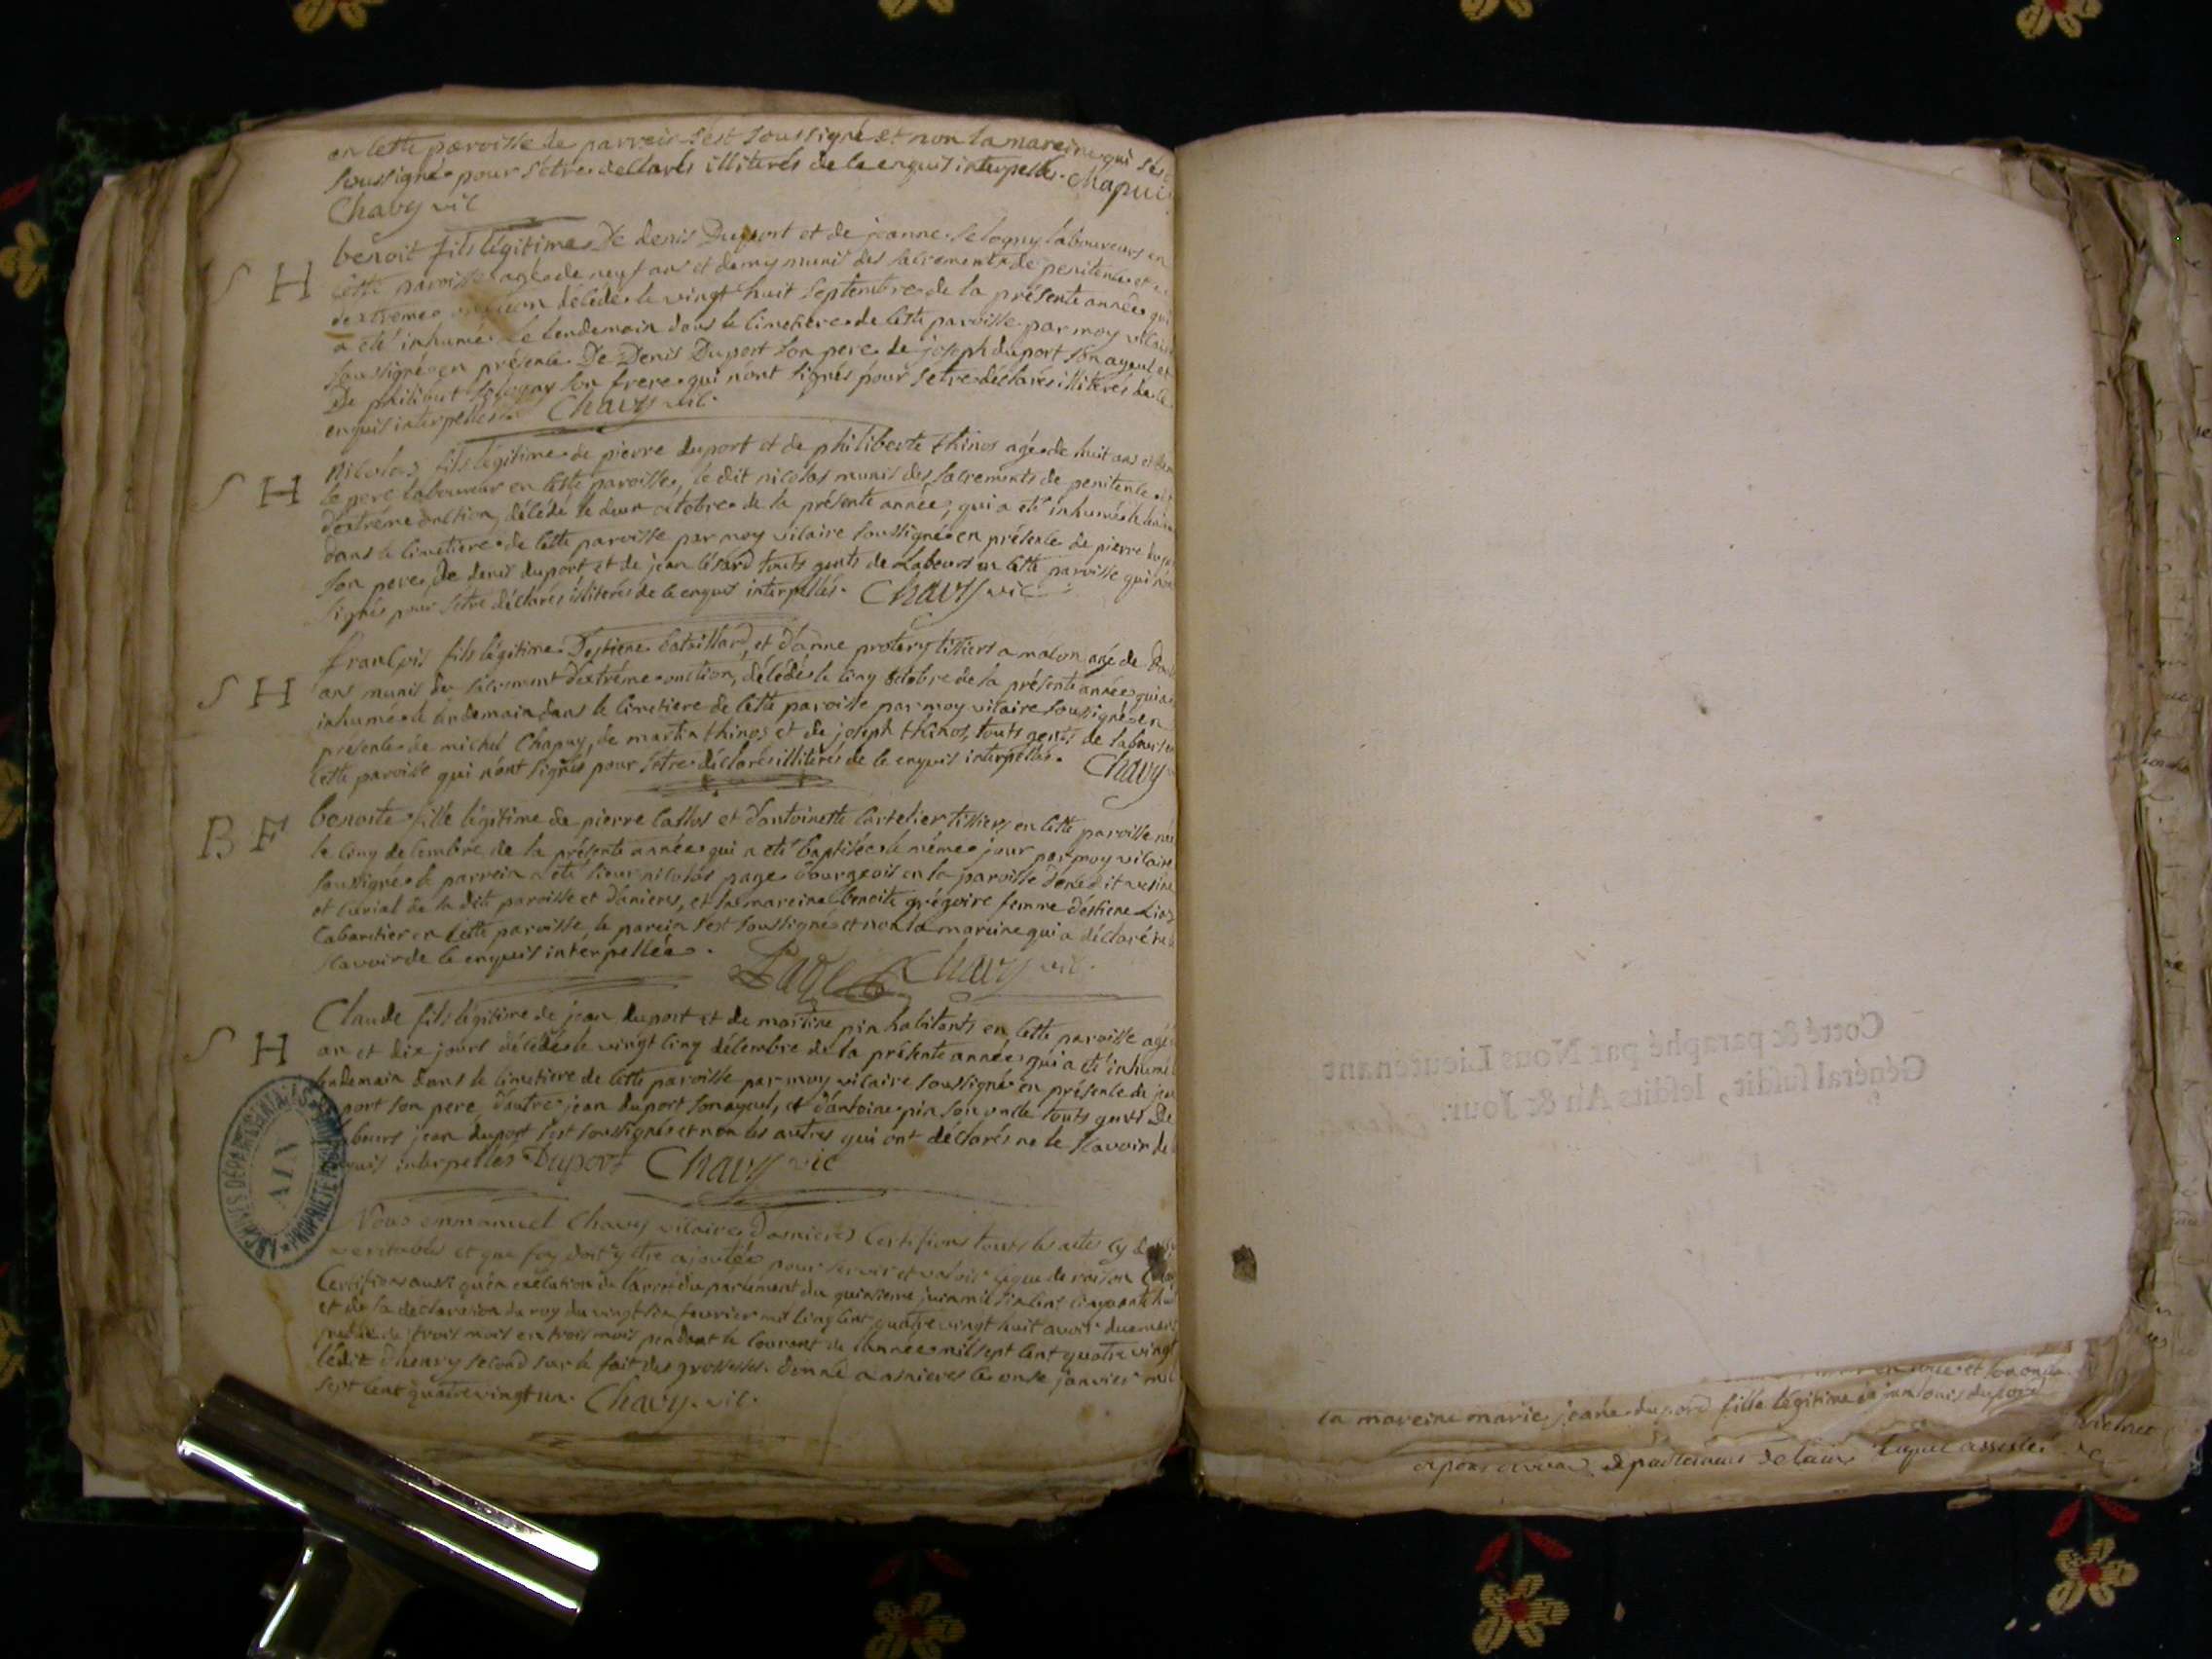 en cette paroisse le parrein s'est soussigné et non la mareine qui
soussigné pour s'etre declarés illiterés de ce enquis interpellés. Chapui
Chavy vic
S H
benoit fils légitime De denis Duport et de jeanne laboureurs en
cette paroisse agé de neuf ans et demy munis des sacrements de penitence et
d'extreme onction décédé le vingt huit septembre de la présente année qui
a eté inhumé le lendemain dans le cimetiere de cette paroisse par moy vicaire
soussigné en présence De Denis Duport son pere de joseph duport son ayeul et
De philibert son frere qui n'ont signés pour s'etre déclarés illiterés de ce
enquis interpellés. Chavy vic.
S H
Nicolas fils légitime de pierre duport et de philiberte thinos agé de huit ans et
le pere laboureur en cette paroisse, le dit nicolas munis des sacrements de penitence et
d'extréme onction, décédé le deux octobre de la présente année, qui a eté inhumé le
dans le cimetiere de cette paroisse par moy vicaire soussigné en présence de pierre
son pere, De denis duport et de jean touts gents de Labeurs en cette paroisse qui
signés pour s'etre déclarés illiterés de ce enquis interpellés. Chavy vic
S H
françois fils légitime D'estiene bataillard, et d'anne tissiers a macon agé de
ans munis du sacrement d'extréme onction, décédé le cinq octobre de la présente année qui a
inhumé le lendemain dans le cimetiere de cette paroisse par moy vicaire soussigné en
présence de michel Chapuy, de martin thinos et de joseph thinos, touts gents de labeurs en
cette paroisse qui n'ont signés pour s'etre déclarés illiterés de ce enquis interpellés. Chavy
B F
benoite fille légitime de pierre et d'antoinette cartelier tissiers en cette paroisse née
le cinq decembre de la présente année qui a eté baptisée le même jour par moy vicaire
soussigné le parrein a eté sieur nicolas page bourgeois en la paroisse
et curial de la dite paroisse et d'anieres, et la mareine benoite grégoire femme d'éstiene
Cabaretier en cette paroisse, le parein s'est soussigné et non la mareine qui a déclaré ne
scavoir de ce enquis interpellée. Page Chavy vic.
S H
Claude fils légitime de jean duport et de martine pin habitants en cette paroisse agé
an et dix jours décédé le vingt cinq décembre de la présente année qui a eté inhumé
lendemain dans le cimetiere de cette paroisse par moy vicaire soussigné en présence de
port son pere, d'autre jean duport son ayeul, et d'antoine pin son oncle touts gents De
beurs jean duport s'est soussigné et non les autres qui ont déclarés ne le scavoir de
enquis interpellés Duport Chavy vic
ARCHIVES DÉPARTEMENTALES * PROPRIÉTÉ PUBLIQUE * AIN
Nous emmanuel Chavy vicaire d'asnieres Certifions touts les actes cy
veritables et que foy doit y etre ajoutée pour servir et valoir ce que de raison
Certifions aussi qu'en exécution de l'arrét du parlement du quinzieme juin mil six cent cinquante
et de la declaration du roy du vingt six fevrier mil cinq cent quatre vingt huit avoir
publié de trois mois en trois mois pendant le courant de l'année mil sept cent quatre vingt
l'édit d'henry second sur le fait des grossesses. donné a asnieres ce onze janvier mil
sept cent quatre vingt un. Chavy. vic.
Cotté & paraphé par Nous Lieutenant
Général susdit, lesdits An & Jour.
la mareine marie jeane duport fille légitime de